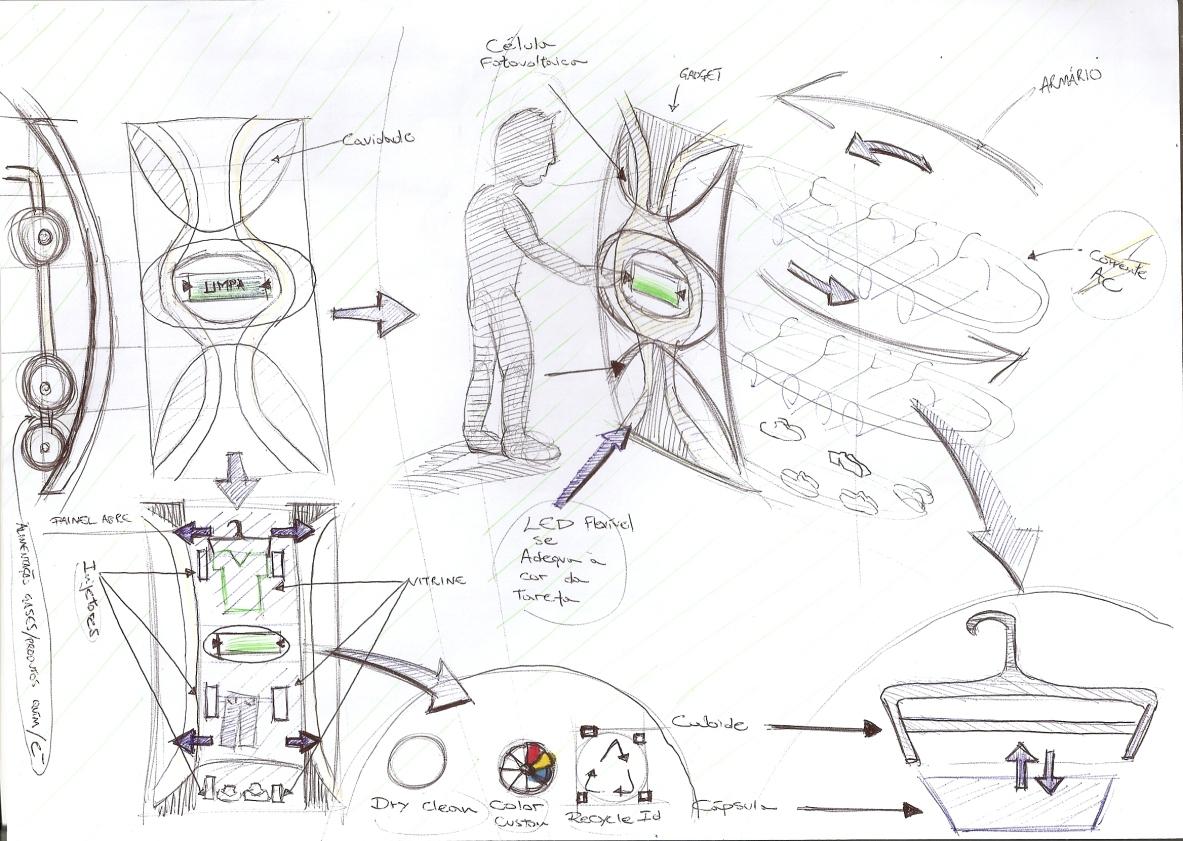 Célula
Fotovoltaica
GADGET
ARMÁRIO
Cavidade
Corrente
AC
LIMPA
PAINEL ABRE
Injectores
VITRINE
LED Flexivel
se
Adequa à
cor da
Tarefa
ALIMENTAÇÃO GASES/PRODUTOS QUIM/
Cabide
Dry Clean
Color
Custom
Recycle Id
Cápsula